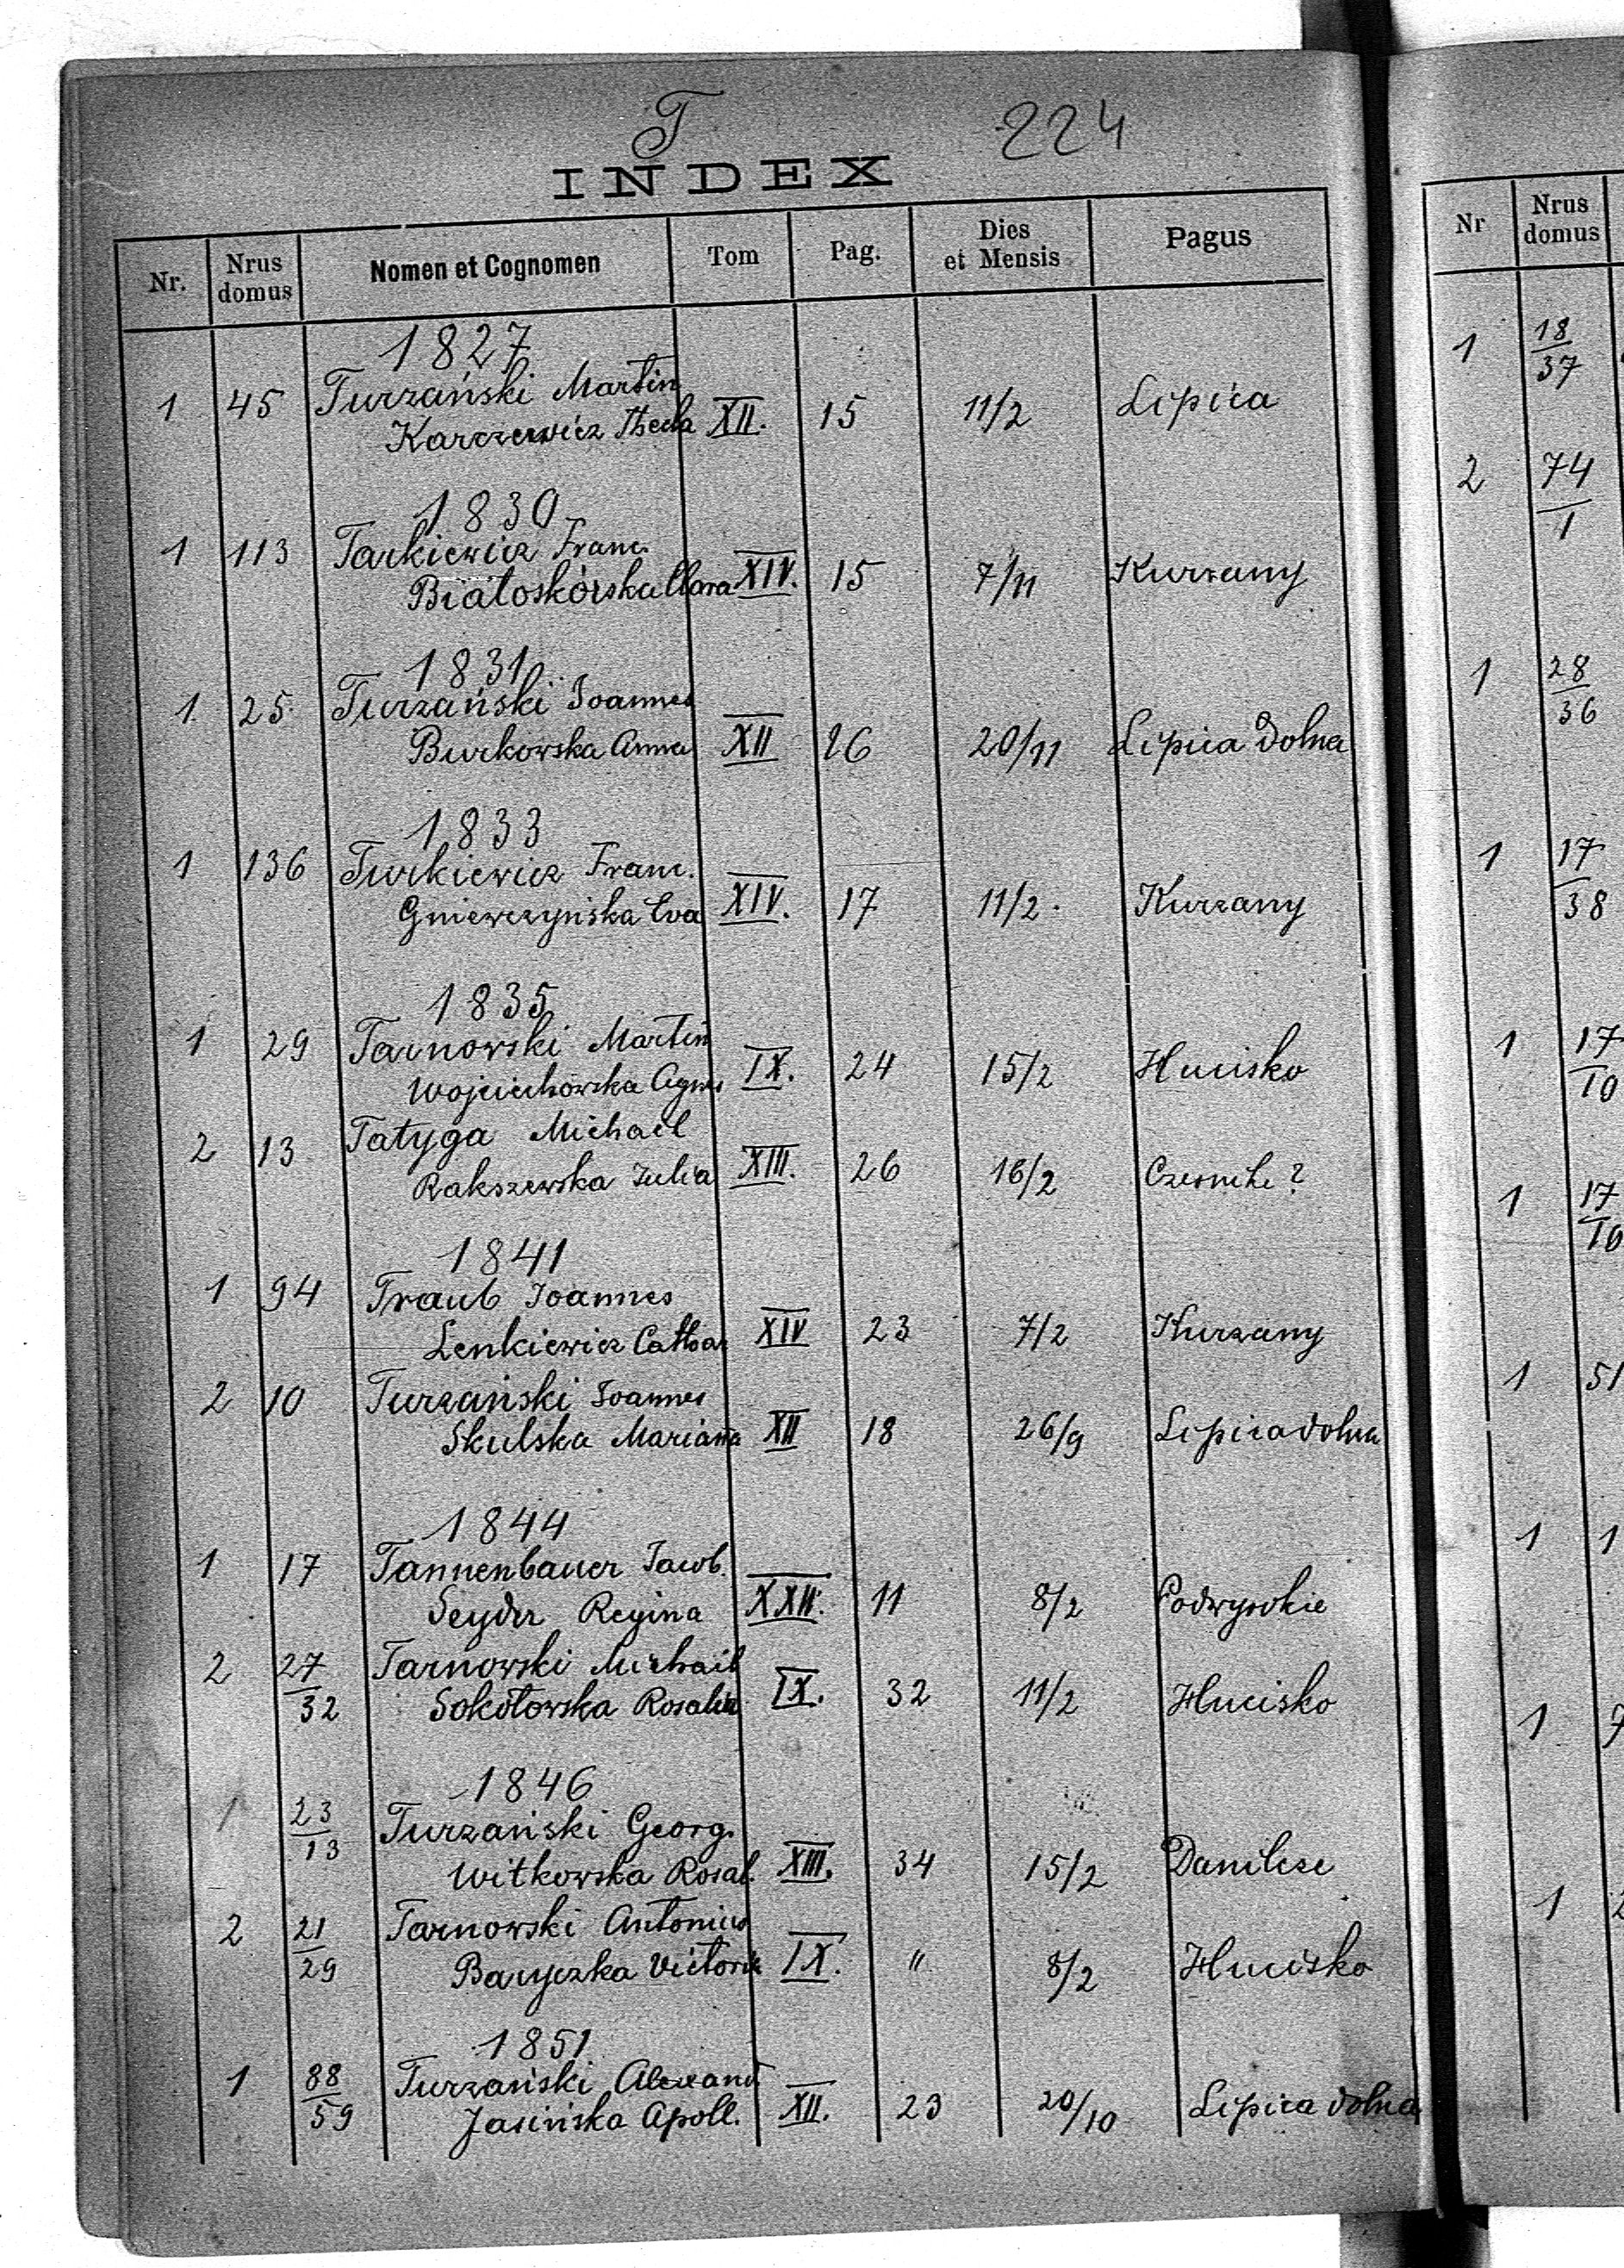 T 224
INDEX
Nr. Nrus domus Nomen et Cognomen Tom Pag. Dies et Mensis Pagus
1827
1 45 Turzański Martin
Karczewicz Thecla XII. 15 11/2 Lipica
1830
1 113 Tarkiewicz Franc.
Białoskórska Clara XIV. 15 7/11 Kurzany
1831
1 25 Turzański Joannes
Burkowska Anna XII 26 20/11 Lipica dolna
1833
1 136 Turkiewicz Franc.
Gniewczyńska Eva XIV. 17 11/2. Kurzany
1835
1 29 Tarnowski Martin
Wojciechowska Agnes IX. 24 15/2 Hucisko
2 13 Tatyga Michael
Rakszewska Julia XIII. 26 16/2 ?
1841
1 94 Traub Joannes
Lenkiewicz Cathar XIV 23 7/2 Kurzany
2 10 Turzański Joannes
Skulska Marianna XII 18 26/9 Lipica dolna
1844
1 17 Tannenbauer Jacob.
Seyder Regina XXII. 11 8/2 Podwysokie
2 27/32 Tarnowski Michael
Sokołowska Rosalia IX. 32 11/2 Hucisko
1846
1 23/13 Turzański Georg.
Witkowska Rosal. XIII. 34 15/2 Danilcze
2 21/29 Tarnowski Antonius
Baryczka Victoria IX. " 8/2 Hucisko
1851
1 88/59 Turzański Alexand
Jasińska Apoll. XII. 23 20/10 Lipica dolna
Nr Nrus domus
1 18/37
2 74/1
1 28/36
1 17/38
1 17/10
1 17/16
1 51
1 1
1 7
1